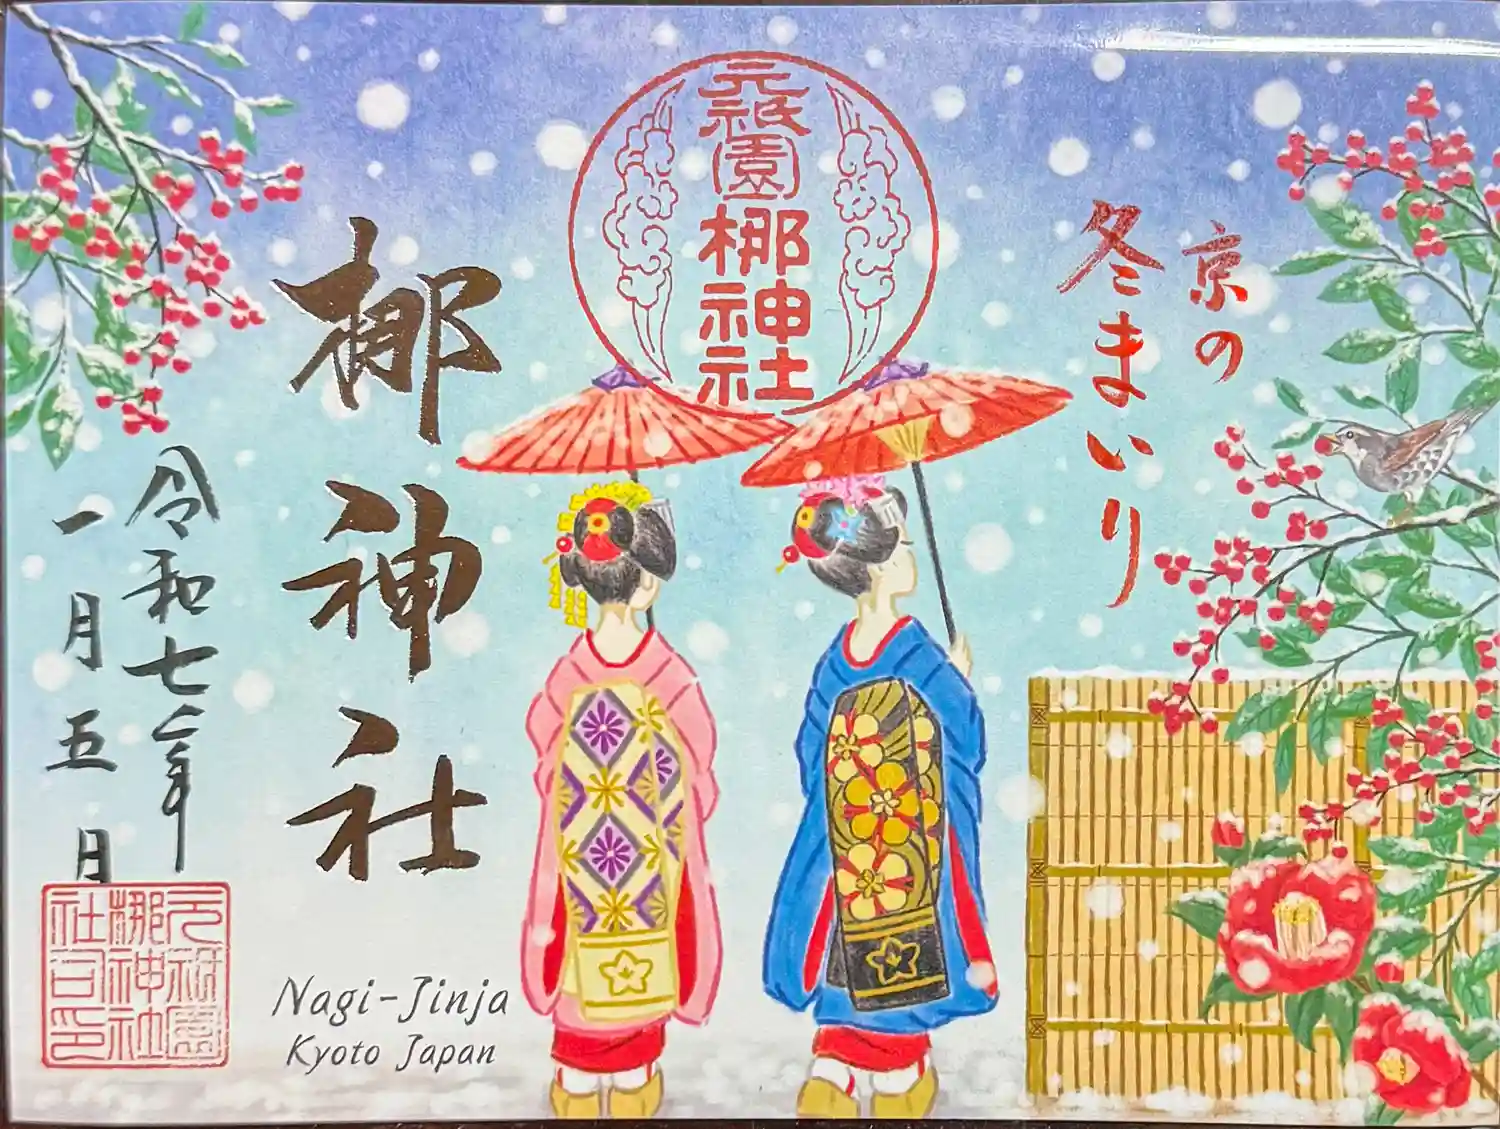 京の
冬まいり
元祇園
梛神社
梛神社
令和七年
一月五日
元祇園
梛神社
社司之印
Nagi-Jinja
Kyoto Japan